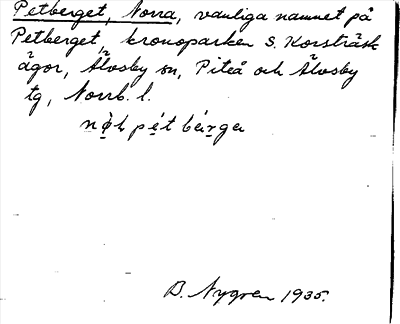 Petberget, Norra, vanliga namnet på
Petberget, kronoparken S. Korsträsk
ägor, Älvsby sn, Piteå och Älvsby
tg, Norrb. l.
B. Nygren 1935.